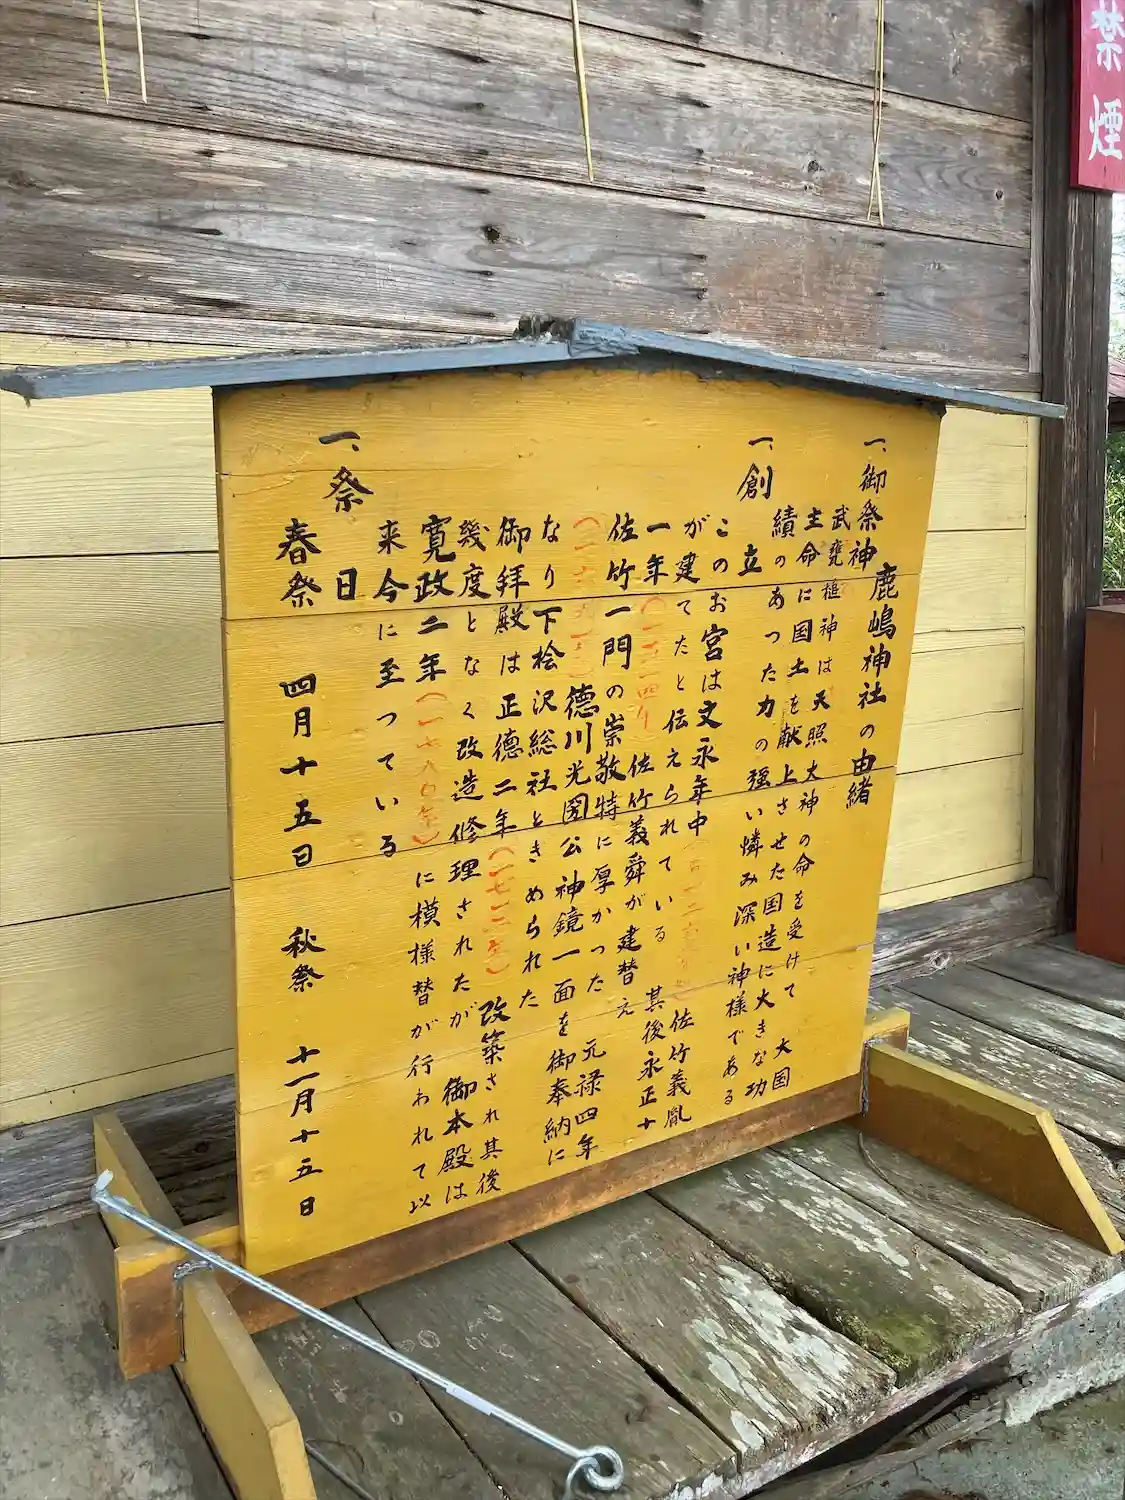 一、御祭神 鹿嶋神社の由緒
武甕槌神は天照大神の命を受けて 大国
主命に国土を献上させた国造に大きな功
績のあった力の強い憐み深い神様である
一、創立
このお宮は文永年中 佐竹義胤
が建てたと伝えられている 其後永正十
一年(一五一四年)佐竹義舜が建替え
佐竹一門の崇敬特に厚かった 元禄四年
(一六九一年)徳川光圀公神鏡一面を御奉納に
なり下桧沢総社ときめられた
御拝殿は正徳二年(一七一二年)改築され其後
幾度となく改造修理されたが 御本殿は
寛政二年(一七九〇年)に模様替が行われて以
来今に至っている
一、祭日
春祭 四月十五日 秋祭 十一月十五日
禁煙